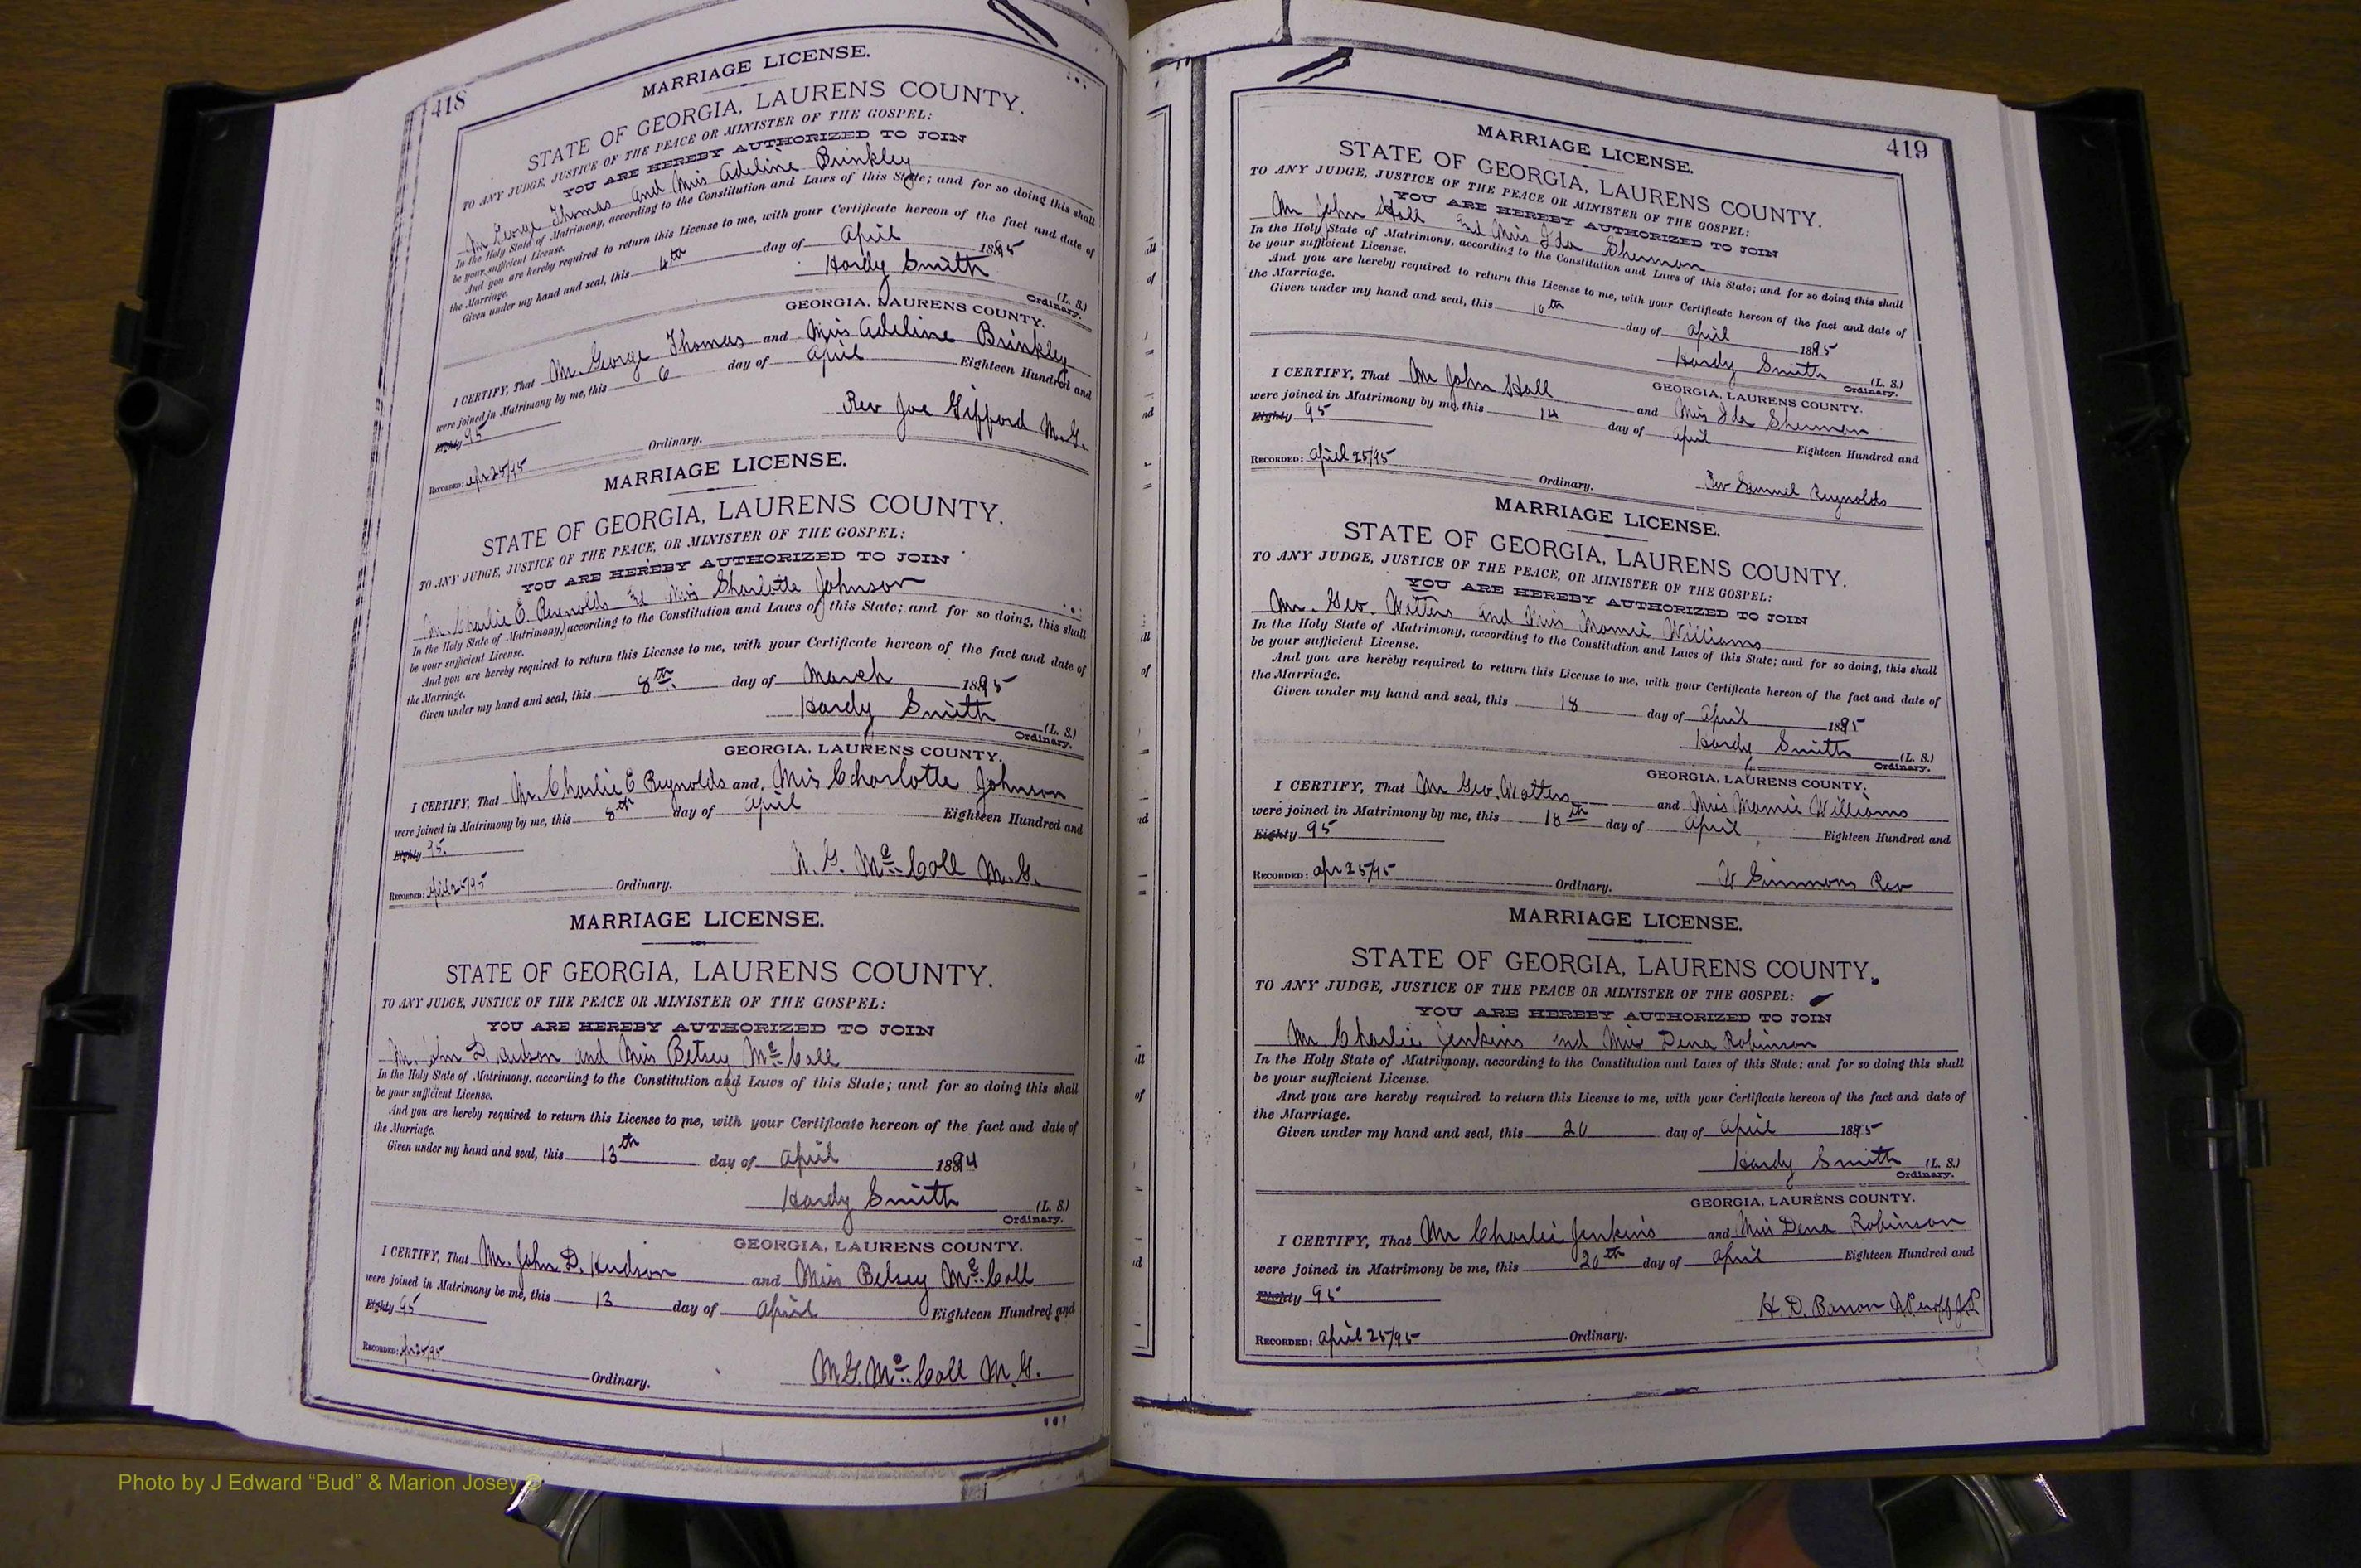 418
MARRIAGE LICENSE.
STATE OF GEORGIA, LAURENS COUNTY.
TO ANY JUDGE, JUSTICE OF THE PEACE OR MINISTER OF THE GOSPEL:
YOU ARE HEREBY AUTHORIZED TO JOIN
Mr George Thomas and Miss Adeline Brinkley
In the Holy State of Matrimony, according to the Constitution and Laws of this State; and for so doing this shall
be your sufficient License.
And you are hereby required to return this License to me, with your Certificate hereon of the fact and date of
the Marriage.
Given under my hand and seal, this 6th day of April 1895
Hardy Smith (L. S.)
Ordinary.
GEORGIA, LAURENS COUNTY.
I CERTIFY, That Mr. George Thomas and Miss Adeline Brinkley
were joined in Matrimony by me, this 6 day of April Eighteen Hundred and
Eighty 95
Rev Joe Gifford M.G.
RECORDED: Apr 25/95 Ordinary.
MARRIAGE LICENSE.
STATE OF GEORGIA, LAURENS COUNTY.
TO ANY JUDGE, JUSTICE OF THE PEACE, OR MINISTER OF THE GOSPEL:
YOU ARE HEREBY AUTHORIZED TO JOIN
Mr. Charlie E. Reynolds and Miss Charlotte Johnson
In the Holy State of Matrimony, according to the Constitution and Laws of this State; and for so doing, this shall
be your sufficient License.
And you are hereby required to return this License to me, with your Certificate hereon of the fact and date of
the Marriage.
Given under my hand and seal, this 8th day of March 1895
Hardy Smith (L. S.)
Ordinary.
GEORGIA, LAURENS COUNTY.
I CERTIFY, That Mr. Charlie E Reynolds and Miss Charlotte Johnson
were joined in Matrimony by me, this 8th day of April Eighteen Hundred and
Eighty 95.
G. McCall M.G.
RECORDED: April 25/95 Ordinary.
MARRIAGE LICENSE.
STATE OF GEORGIA, LAURENS COUNTY.
TO ANY JUDGE, JUSTICE OF THE PEACE OR MINISTER OF THE GOSPEL:
YOU ARE HEREBY AUTHORIZED TO JOIN
Mr. John D. Hudson and Miss Betsey McCall
In the Holy State of Matrimony, according to the Constitution and Laws of this State; and for so doing this shall
be your sufficient License.
And you are hereby required to return this License to me, with your Certificate hereon of the fact and date of
the Marriage.
Given under my hand and seal, this 13th day of April 1894
Hardy Smith (L. S.)
Ordinary.
GEORGIA, LAURENS COUNTY.
I CERTIFY, That Mr. John D. Hudson and Miss Betsey McCall
were joined in Matrimony be me, this 13 day of April Eighteen Hundred and
Eighty 95
RECORDED: Apr 25/95
M.G. McCall M.G.
Ordinary.
419
MARRIAGE LICENSE.
STATE OF GEORGIA, LAURENS COUNTY.
TO ANY JUDGE, JUSTICE OF THE PEACE OR MINISTER OF THE GOSPEL:
YOU ARE HEREBY AUTHORIZED TO JOIN
Mr John Hall and Miss Ida Sherman
In the Holy State of Matrimony, according to the Constitution and Laws of this State; and for so doing this shall
be your sufficient License.
And you are hereby required to return this License to me, with your Certificate hereon of the fact and date of
the Marriage.
Given under my hand and seal, this 10th day of April 1895
Hardy Smith (L. S.)
Ordinary.
GEORGIA, LAURENS COUNTY.
I CERTIFY, That Mr John Hall and Miss Ida Sherman
were joined in Matrimony by me, this 14 day of April Eighteen Hundred and
Eighty 95
RECORDED: April 25/95 Ordinary.
Rev Samuel Reynolds
MARRIAGE LICENSE.
STATE OF GEORGIA, LAURENS COUNTY.
TO ANY JUDGE, JUSTICE OF THE PEACE, OR MINISTER OF THE GOSPEL:
YOU ARE HEREBY AUTHORIZED TO JOIN
Mr. Geo. Watters and Miss Mamie Williams
In the Holy State of Matrimony, according to the Constitution and Laws of this State; and for so doing, this shall
be your sufficient License.
And you are hereby required to return this License to me, with your Certificate hereon of the fact and date of
the Marriage.
Given under my hand and seal, this 18 day of April 1895
Hardy Smith (L. S.)
Ordinary.
GEORGIA, LAURENS COUNTY.
I CERTIFY, That Mr Geo. Watters and Miss Mamie Williams
were joined in Matrimony by me, this 18th day of April Eighteen Hundred and
Eighty 95
RECORDED: Apr 25/95 Ordinary.
W Simmons Rev
MARRIAGE LICENSE.
STATE OF GEORGIA, LAURENS COUNTY.
TO ANY JUDGE, JUSTICE OF THE PEACE OR MINISTER OF THE GOSPEL:
YOU ARE HEREBY AUTHORIZED TO JOIN
Mr Charlie Jenkins and Miss Dena Robinson
In the Holy State of Matrimony, according to the Constitution and Laws of this State; and for so doing this shall
be your sufficient License.
And you are hereby required to return this License to me, with your Certificate hereon of the fact and date of
the Marriage.
Given under my hand and seal, this 20 day of April 1895
Hardy Smith (L. S.)
Ordinary.
GEORGIA, LAURENS COUNTY.
I CERTIFY, That Mr Charlie Jenkins and Miss Dena Robinson
were joined in Matrimony be me, this 20th day of April Eighteen Hundred and
Eighty 95
H. D. Barron
RECORDED: April 25/95 Ordinary.
Photo by J Edward “Bud” & Marion Josey ©